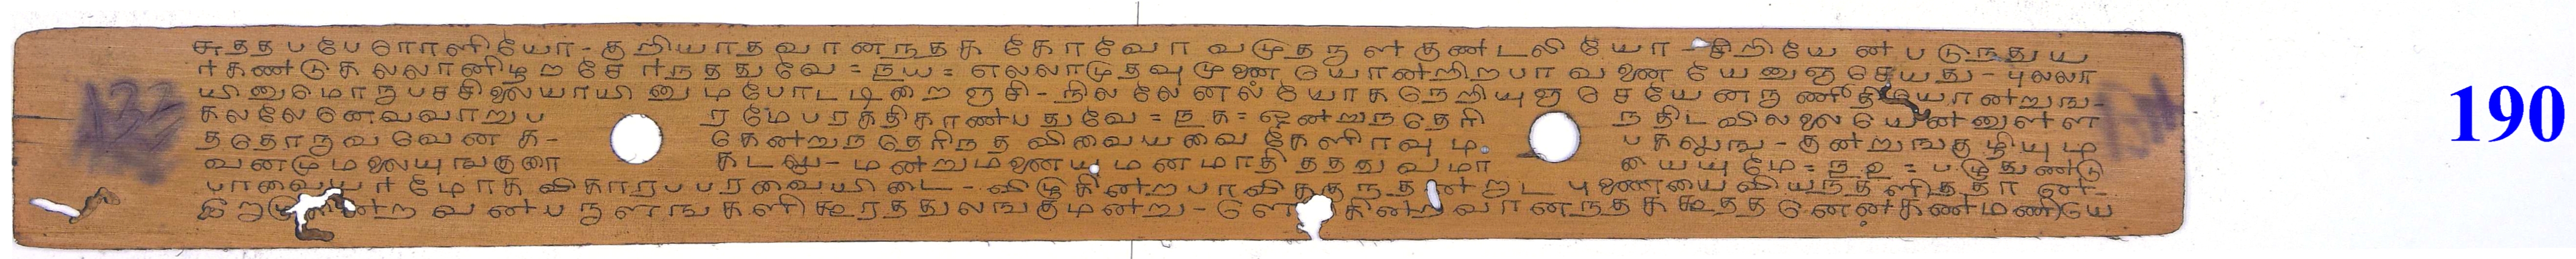 சுத்த ப பே ரொளியோ - குறியாத வானந்தக் கோவோ வமுத நள் குண்டலி யோ - சிறியேன் படுந்துய
ர்கண்டு கல்லானிழற் சேர்ந்தது வே = ந ய = எல்லாமுதவு முனை யொன்றிற்பாவனை யேனுஞ் செய்து - புல்லா
யினுமொரு பச்சிலையாயினு ம்போட்டிறைஞ்சி - நில்லேனல் யோகநெறியுஞ் செயேனருணீதி யொன்றுங்-
கல்லேனெவ்வாறு ப ரமே பரகதி காண்பதுவே = ந க = ஒன்றுந்தெரி ந்திடவில்லை யென்னுள்ள
த்தொருவ வேன க்- கென்றுந்தெரிந்த விவையவை கேளிரவும் பகலுங் - குன்றுங்குழியும்
வனமு மலையுங்குரை கடலு - மன்றுமனையு மனமாதி தத்துவமா யையுமே = ந உ = பழுதுண்டு
பாவையர் மோக விகாரப்பரவையிடை - விழுகின்ற பாவிக்குந்த ன்றாட் புணையை வியந்தளித்தா னெ-
வன்ப ருளங்களி கூர்ந்து லங்குமன்று - ளெ கின்ற வானந்தக் கூத்த னென் கண்மணியே
132
190